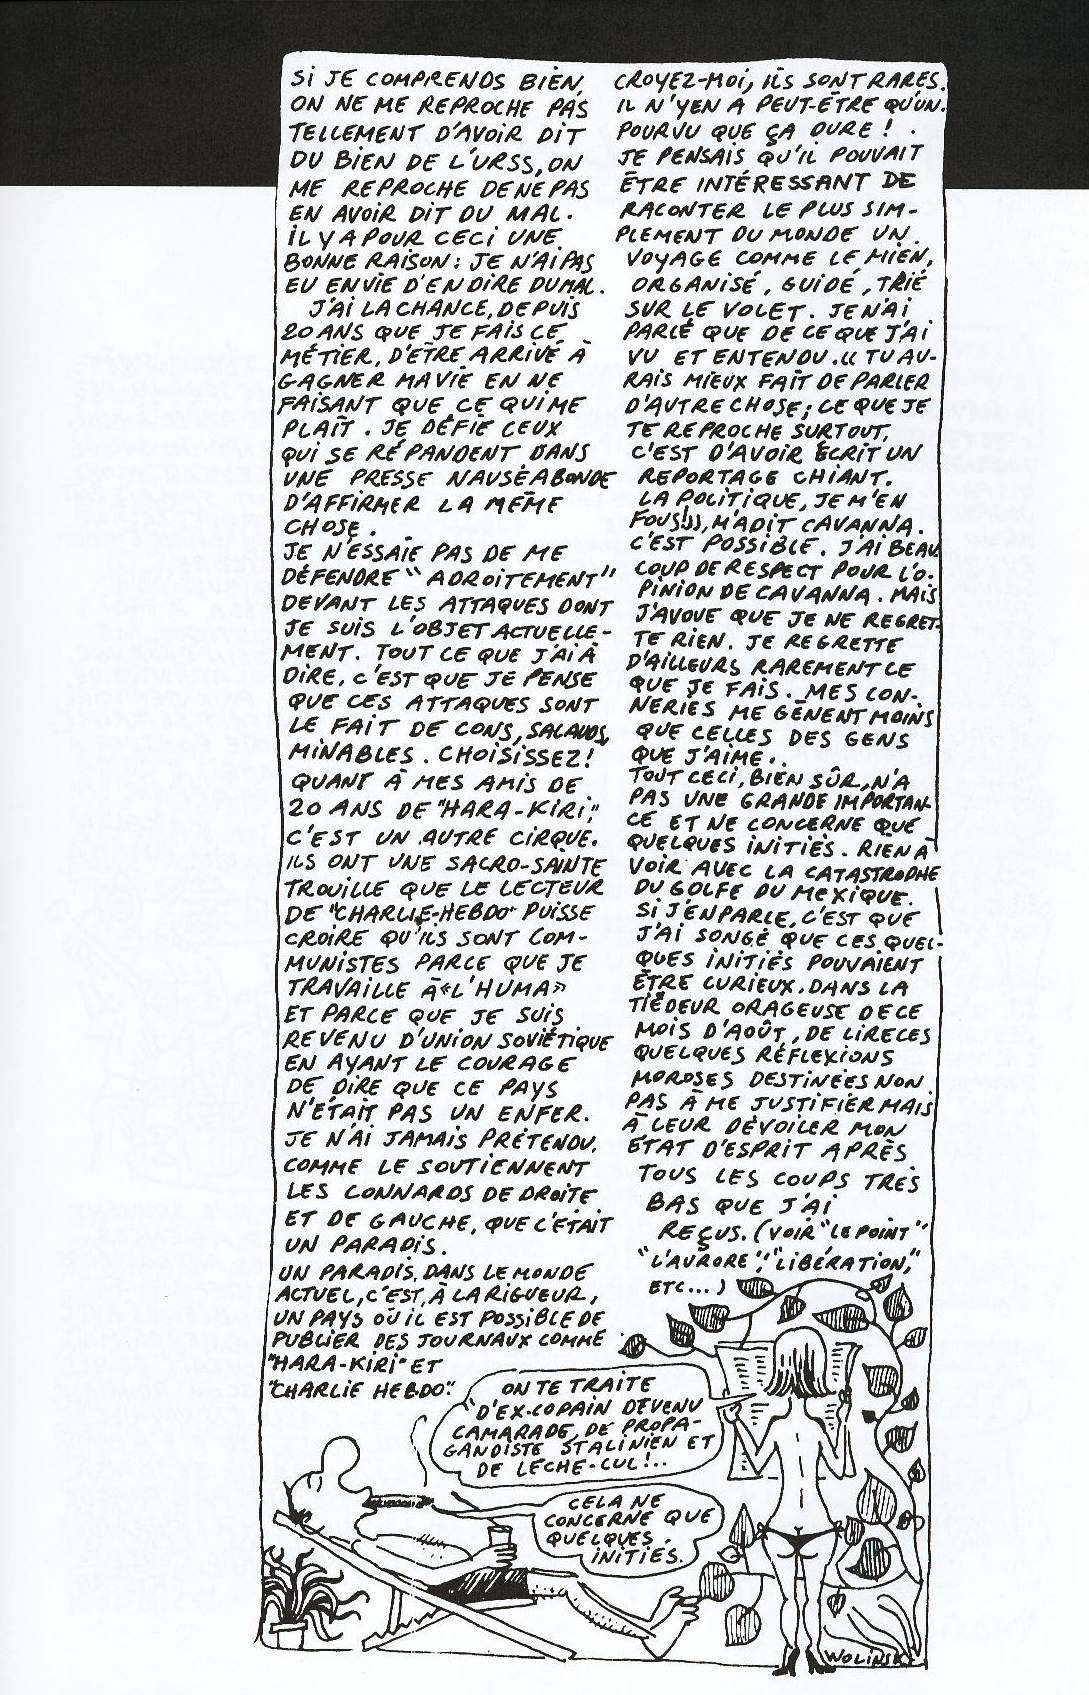 SI JE COMPRENDS BIEN,
ON NE ME REPROCHE PAS
TELLEMENT D'AVOIR DIT
DU BIEN DE L'URSS, ON
ME REPROCHE DE NE PAS
EN AVOIR DIT DU MAL.
IL Y A POUR CECI UNE
BONNE RAISON : JE N'AI PAS
EU ENVIE D'EN DIRE DU MAL.
J'AI LA CHANCE, DEPUIS
20 ANS QUE JE FAIS CE
MÉTIER, D'ETRE ARRIVÉ À
GAGNER MA VIE EN NE
FAISANT QUE CE QUI ME
PLAÎT. JE DÉFIE CEUX
QUI SE RÉPANDENT DANS
UNE PRESSE NAUSÉABONDE
D'AFFIRMER LA MÊME
CHOSE.
JE N'ESSAIE PAS DE ME
DÉFENDRE "ADROITEMENT"
DEVANT LES ATTAQUES DONT
JE SUIS L'OBJET ACTUELLE-
MENT. TOUT CE QUE J'AI À
DIRE, C'EST QUE JE PENSE
QUE CES ATTAQUES SONT
LE FAIT DE CONS, SALAUDS,
MINABLES. CHOISISSEZ!
QUANT À MES AMIS DE
20 ANS DE "HARA-KIRI",
C'EST UN AUTRE CIRQUE.
ILS ONT UNE SACRO-SAINTE
TROUILLE QUE LE LECTEUR
DE "CHARLIE-HEBDO" PUISSE
CROIRE QU'ILS SONT COM-
MUNISTES PARCE QUE JE
TRAVAILLE À «L'HUMA»
ET PARCE QUE JE SUIS
REVENU D'UNION SOVIÉTIQUE
EN AYANT LE COURAGE
DE DIRE QUE CE PAYS
N'ÉTAIT PAS UN ENFER.
JE N'AI JAMAIS PRÉTENDU,
COMME LE SOUTIENNENT
LES CONNARDS DE DROITE
ET DE GAUCHE, QUE C'ÉTAIT
UN PARADIS.
UN PARADIS, DANS LE MONDE
ACTUEL, C'EST, À LA RIGUEUR,
UN PAYS OÙ IL EST POSSIBLE DE
PUBLIER DES JOURNAUX COMME
"HARA-KIRI" ET
"CHARLIE HEBDO".
CROYEZ-MOI, ILS SONT RARES.
IL N'Y EN A PEUT-ÊTRE QU'UN.
POURVU QUE ÇA DURE !
JE PENSAIS QU'IL POUVAIT
ÊTRE INTÉRESSANT DE
RACONTER LE PLUS SIM-
PLEMENT DU MONDE UN
VOYAGE COMME LE MIEN,
ORGANISÉ, GUIDÉ, TRIÉ
SUR LE VOLET. JE N'AI
PARLÉ QUE DE CE QUE J'AI
VU ET ENTENDU. "TU AU-
RAIS MIEUX FAIT DE PARLER
D'AUTRE CHOSE ; CE QUE JE
TE REPROCHE SURTOUT,
C'EST D'AVOIR ÉCRIT UN
REPORTAGE CHIANT.
LA POLITIQUE, JE M'EN
FOUS!", M'A DIT CAVANNA.
C'EST POSSIBLE. J'AI BEAU
COUP DE RESPECT POUR L'O-
PINION DE CAVANNA. MAIS
J'AVOUE QUE JE NE REGRET-
TE RIEN. JE REGRETTE
D'AILLEURS RAREMENT CE
QUE JE FAIS. MES CON-
NERIES ME GÊNENT MOINS
QUE CELLES DES GENS
QUE J'AIME..
TOUT CECI, BIEN SÛR, N'A
PAS UNE GRANDE IMPORTAN-
CE ET NE CONCERNE QUE
QUELQUES INITIÉS. RIEN À
VOIR AVEC LA CATASTROPHE
DU GOLFE DU MEXIQUE.
SI J'EN PARLE, C'EST QUE
J'AI SONGÉ QUE CES QUEL-
QUES INITIÉS POUVAIENT
ÊTRE CURIEUX, DANS LA
TIÉDEUR ORAGEUSE DE CE
MOIS D'AOÛT, DE LIRE CES
QUELQUES RÉFLEXIONS
MOROSES DESTINÉES NON
PAS À ME JUSTIFIER MAIS
À LEUR DÉVOILER MON
ÉTAT D'ESPRIT APRÈS
TOUS LES COUPS TRÈS
BAS QUE J'AI
REÇUS. (VOIR "LE POINT"
"L'AURORE", "LIBÉRATION",
ETC...)
ON TE TRAITE
D'EX-COPAIN DEVENU
CAMARADE, DE PROPA-
GANDISTE STALINIEN ET
DE LÈCHE-CUL!..
CELA NE
CONCERNE QUE
QUELQUES
INITIÉS.
WOLINSKI